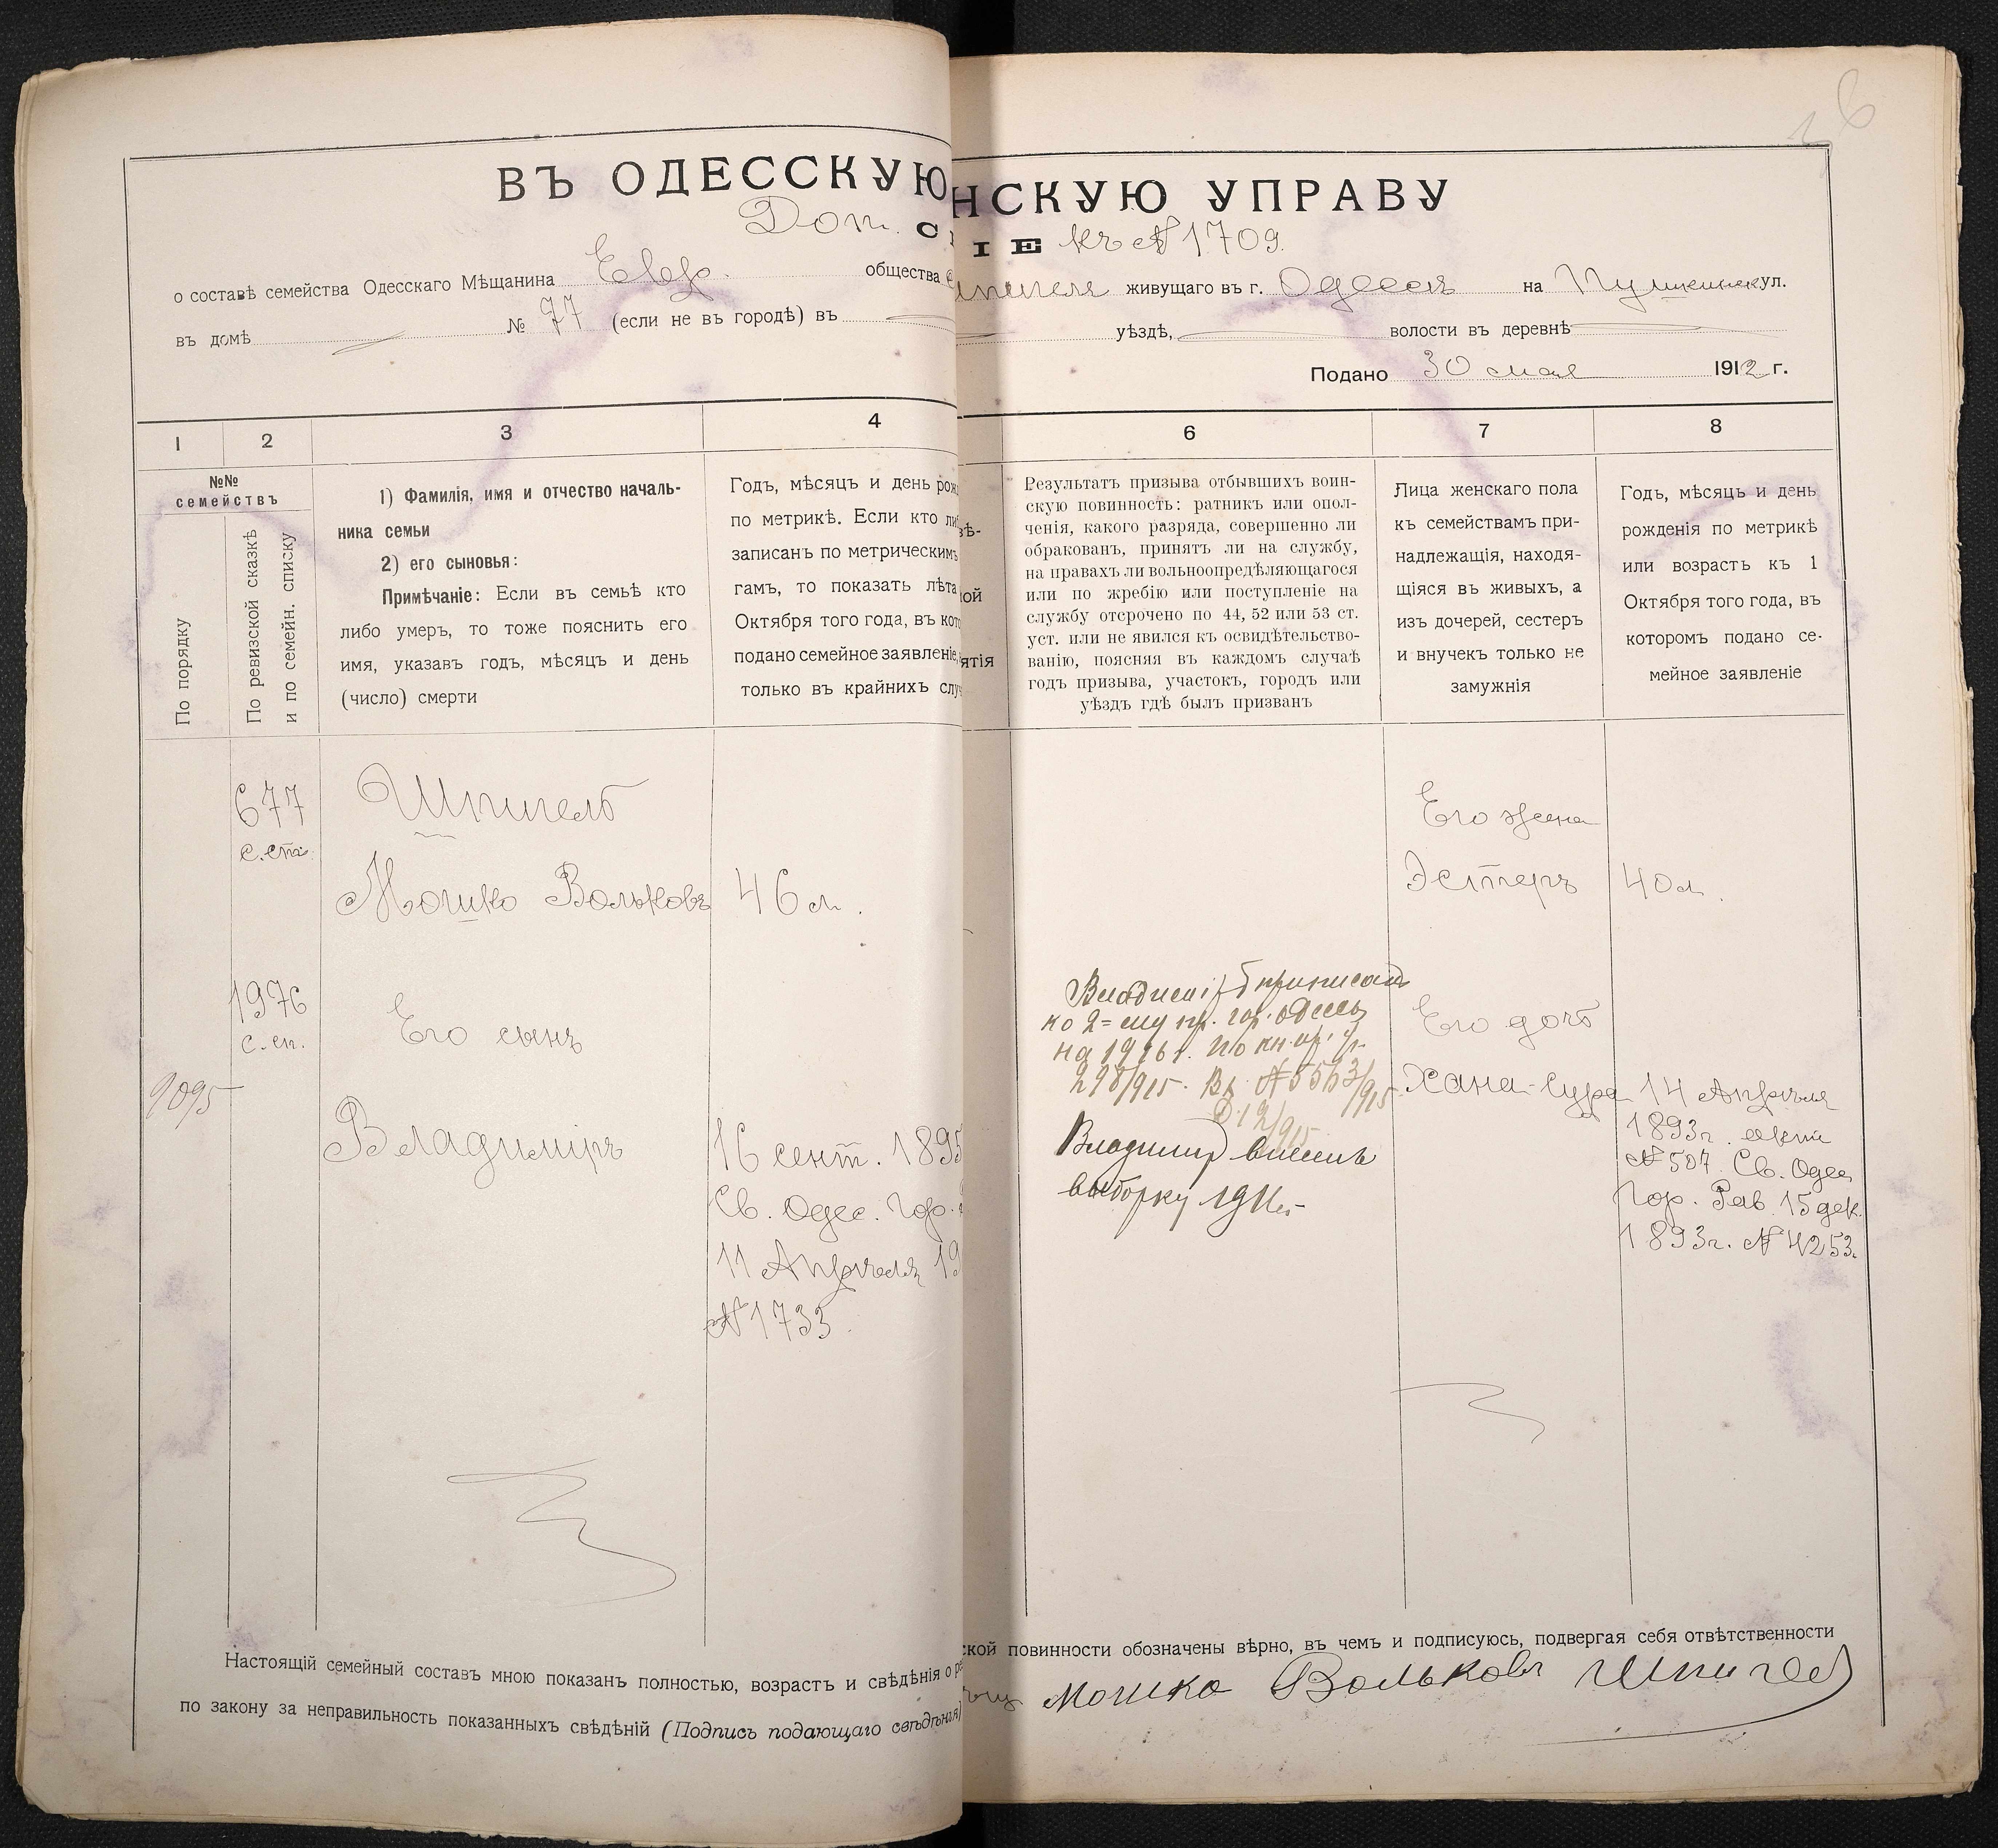 6
ВЪ ОДЕССКУЮ
НСКУЮ УПРАВУ
Доп. С
IЕ къ № 1709.
о составѣ семейства Одесскаго Мѣщанина Евр. общества
живущаго въ г. Одессѣ на Пушкинск ул.
въ домѣ № 77 (если не въ городѣ) въ
уѣздѣ, волости въ деревнѣ
Подано 30 мая 1912 г.
1 2 3 4
6 7 8
№№
семействъ
По порядку
По ревизской сказкѣ
и по семейн. списку
1) Фамилія, имя и отчество началь-
ника семьи
2) его сыновья:
Примѣчаніе: Если въ семьѣ кто
либо умеръ, то тоже пояснить его
имя, указавъ годъ, мѣсяцъ и день
(число) смерти
Годъ, мѣсяцъ и день рож
по метрикѣ. Если кто ли
записанъ по метрическимъ
гамъ, то показать лѣта
Октября того года, въ кот
подано семейное заявленіе,
только въ крайнихъ слу
вѣ-
ой
ятія
Результатъ призыва отбывшихъ воин-
скую повинность: ратникъ или опол-
ченія, какого разряда, совершенно ли
обракованъ, принятъ ли на службу,
на правахъ ли вольноопредѣляющагося
или по жребію или поступленіе на
службу отсрочено по 44, 52 или 53 ст.
уст. или не явился къ освидѣтельство-
ванію, поясняя въ каждомъ случаѣ
годъ призыва, участокъ, городъ или
уѣздъ гдѣ былъ призванъ
Лица женскаго пола
къ семействамъ при-
надлежащія, находя-
щіяся въ живыхъ, а
изъ дочерей, сестеръ
и внучекъ только не
замужнія
Годъ, мѣсяцъ и день
рожденія по метрикѣ
или возрастъ къ 1
Октября того года, въ
которомъ подано се-
мейное заявленіе
677
Шпигель
Мошко Вольковъ 46 л.
1976
с. сп.
Его сынъ
9095
Владиміръ
16 сент. 1895
Св. Одес. Гор.
11 Апрѣля 19
№ 1735.
Владимір приписан
ко 2=му пр. гор. Одессы
на 1916 г. по кн. пр. уч.
298/915. Вх. № 5563/915
Владимир внесен в
выборку 1911 г.
Его жена
Эстеръ 40 л.
Его дочь
Хана-Сура 14 Апрѣля
1893 г. акт
№ 507 Св. Одес.
Гор. Рав. 15 дек.
1893 г. № 4253.
Настоящій семейный составъ мною показанъ полностью, возрастъ и свѣдѣнія о
ской повинности обозначены вѣрно, въ чемъ и подписуюсь, подвергая себя отвѣтственности
по закону за неправильность показанныхъ свѣдѣній (Подпись подающаго свѣдѣнія)
Мошко Вольковъ Шпигел